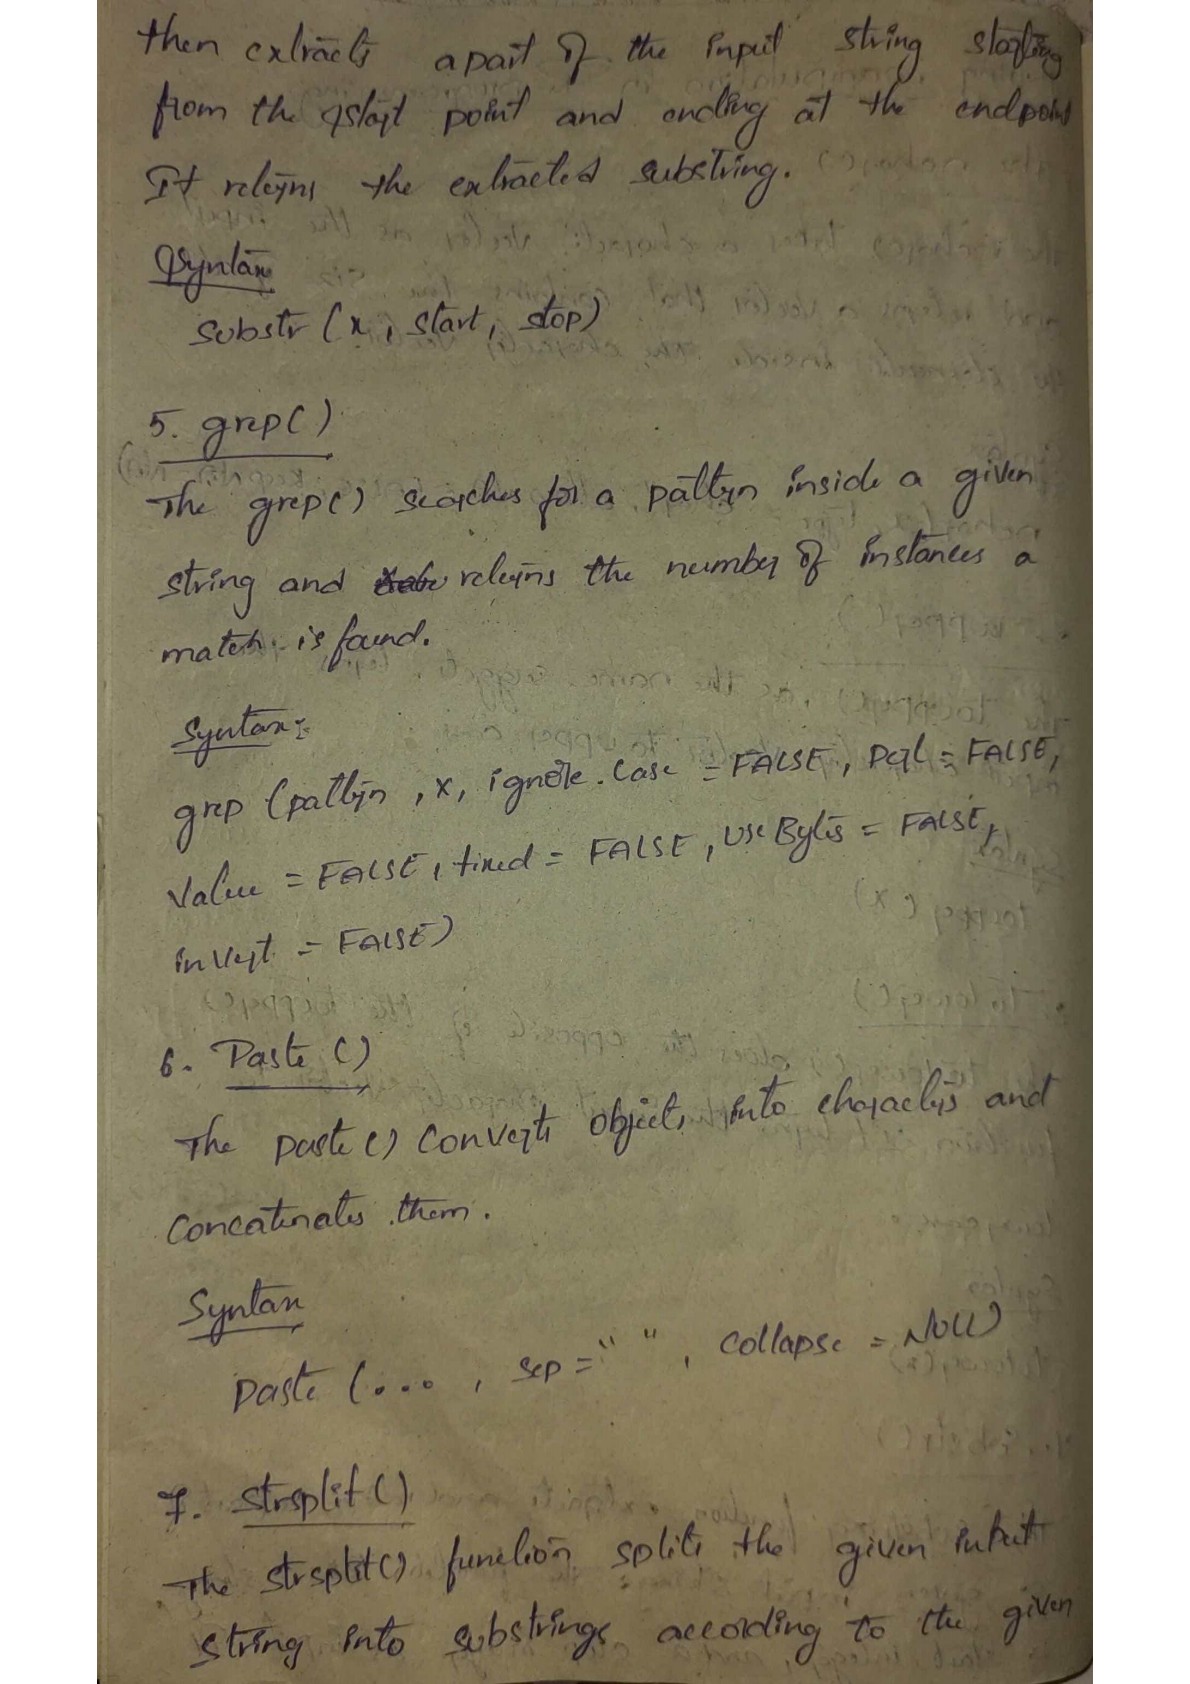 then extracts a part of the input string starting
from the start point and ending at the endpoint
It returns the extracted substring.
Syntax
substr (x, start, stop)
5. grep()
The grep() searches for a pattern inside a given
string and returns the number of instances a
match is found.
Syntax:
grep (pattern, x, ignore.case = FALSE, perl = FALSE,
value = FALSE, fixed = FALSE, useBytes = FALSE,
invert = FALSE)
6. Paste ()
The paste() converts objects into characters and
concatenates them.
Syntax
paste (..., sep = " ", collapse = NULL)
7. strsplit()
The strsplit() function splits the given input
string into substrings according to the given